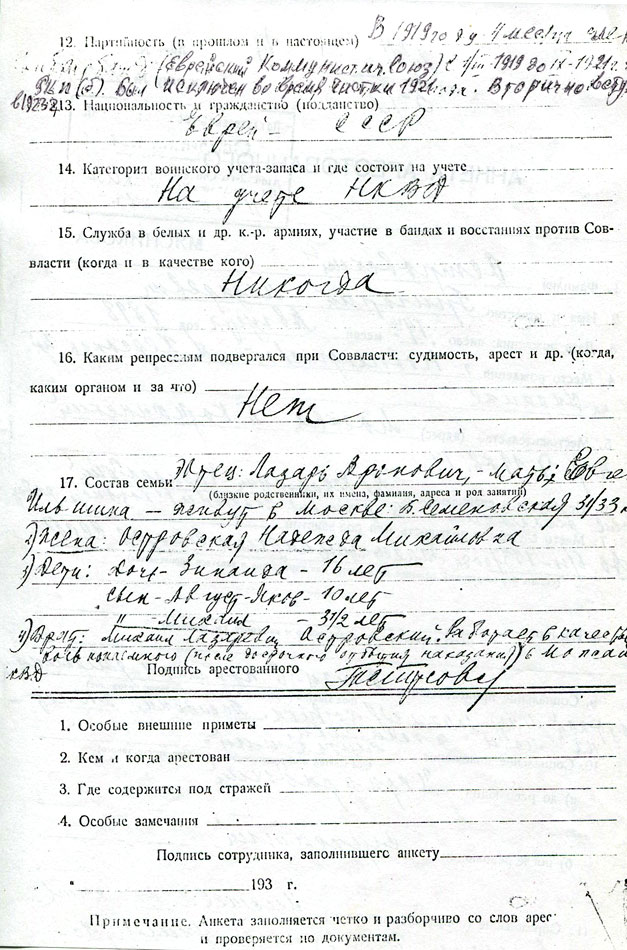 12. Партийность (в прошлом и в настоящем) В 1919 году 4 месяца
(Еврейский Коммунистич. Союз) с 1919 до IX-1921 г.
был исключен во время чистки 1921 года. Вторично вступ
13. Национальность и гражданство (подданство)
Еврей - СССР
14. Категория воинского учета-запаса и где состоит на учете
На учете НКВД
15. Служба в белых и др. к.-р. армиях, участие в бандах и восстаниях против Сов-
власти (когда и в качестве кого)
Никогда
16. Каким репрессиям подвергался при Соввласти: судимость, арест и др. (когда,
каким органом и за что)
Нет
17. Состав семьи Отец: Лазарь Аронович, - мать: Евге
(близкие родственники, их имена, фамилия, адреса и род занятий)
Ильинична — живут в Москве: Б. Семеновская 31/33
2) Жена: Островская Надежда Михайловна
3) Дети: дочь - Зинаида - 16 лет
сын - Август-Яков - 10 лет
" - Михаил - 3 1/2 лет
4) Брат: Михаил Лазаревич Островский. Работает в качестве
вольнонаемного (после досрочного отбытия наказания) в
НКВД
Подпись арестованного
1. Особые внешние приметы
2. Кем и когда арестован
3. Где содержится под стражей
4. Особые замечания
Подпись сотрудника, заполнившего анкету
" 193 г.
Примечание. Анкета заполняется четко и разборчиво со слов арес
и проверяется по документам.